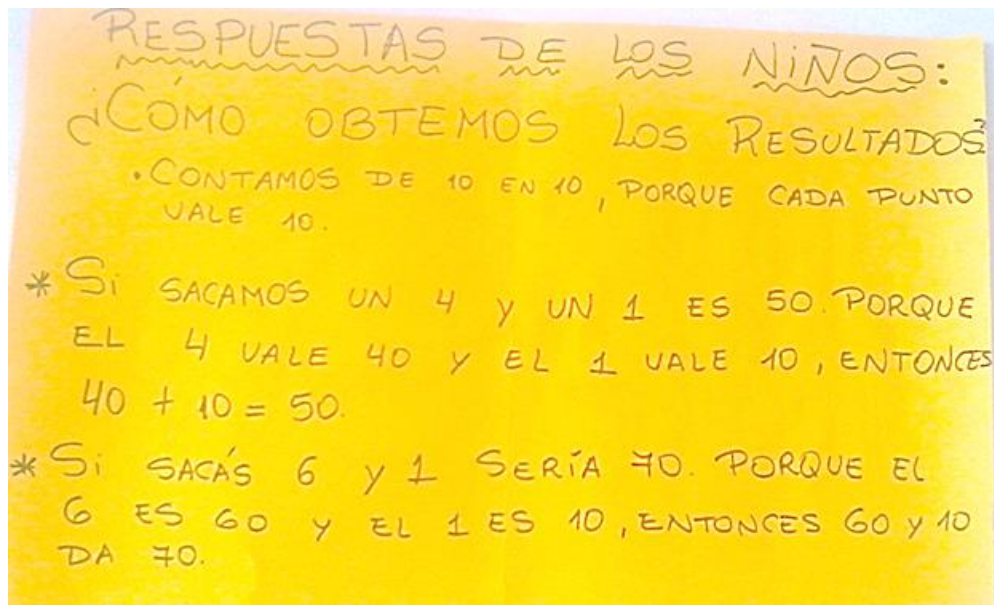 RESPUESTAS DE LOS NIÑOS:
¿CÓMO OBTEMOS LOS RESULTADOS?
• CONTAMOS DE 10 EN 10, PORQUE CADA PUNTO
VALE 10.
* Si SACAMOS UN 4 y UN 1 ES 50. PORQUE
EL 4 VALE 40 y EL 1 VALE 10, ENTONCES
40 + 10 = 50.
* Si SACÁS 6 y 1 SERÍA 70. PORQUE EL
6 ES 60 y EL 1 ES 10, ENTONCES 60 y 10
DA 70.